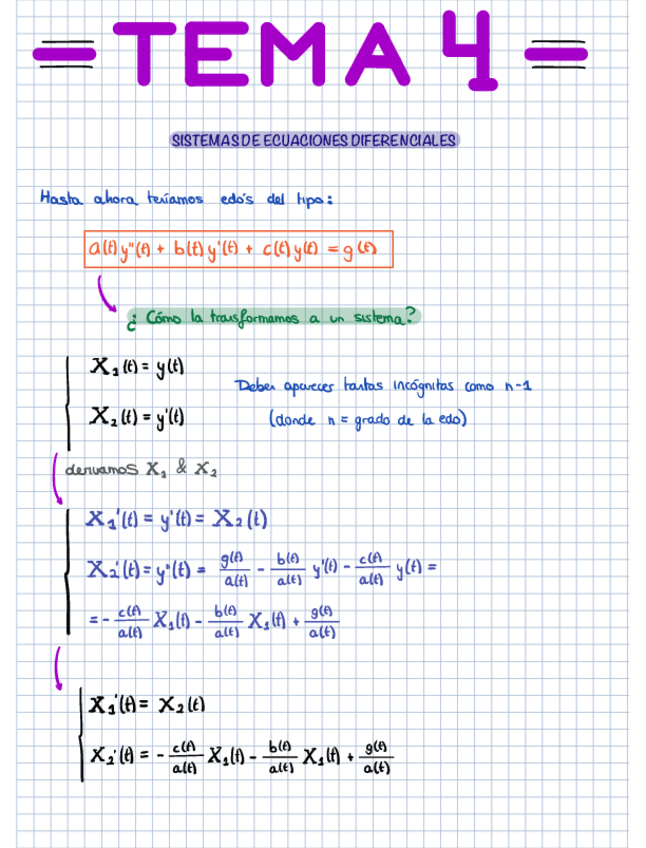 = TEMA 4 =
SISTEMAS DE ECUACIONES DIFERENCIALES
Hasta ahora teníamos edo's del tipo:
a(t) y''(t) + b(t) y'(t) + c(t) y(t) = g(t)
¿Cómo la transformamos a un sistema?
X₁(t) = y(t)
Deben aparecer tantas incógnitas como n-1
X₂(t) = y'(t)
(donde n = grado de la edo)
derivamos X₁ & X₂
X₁'(t) = y'(t) = X₂(t)
X₂'(t) = y''(t) = g(t)/a(t) - b(t)/a(t) y'(t) - c(t)/a(t) y(t) =
= - c(t)/a(t) X₁(t) - b(t)/a(t) X₁(t) + g(t)/a(t)
X₁'(t) = X₂(t)
X₂'(t) = - c(t)/a(t) X₁(t) - b(t)/a(t) X₁(t) + g(t)/a(t)